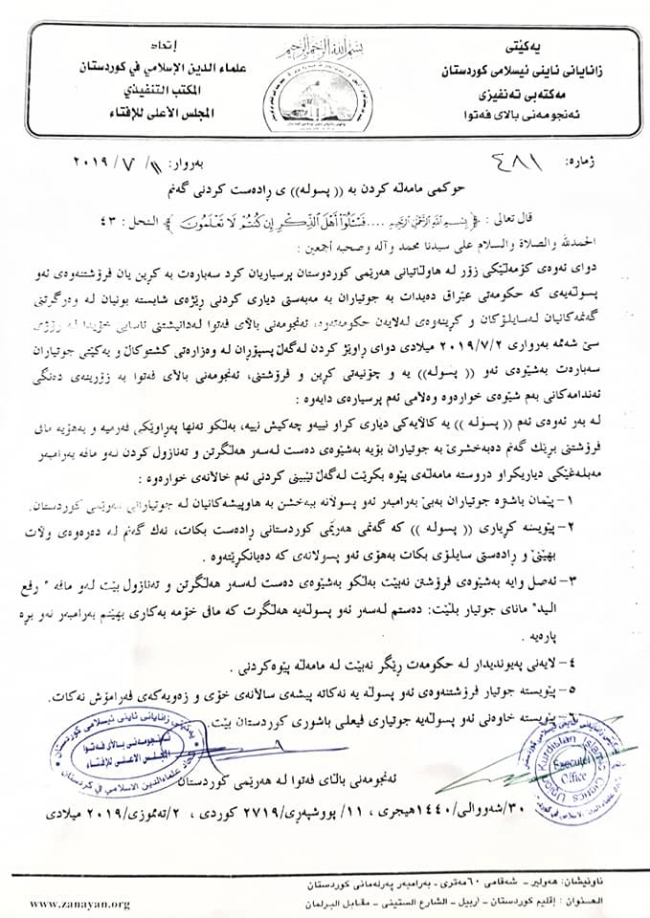 یەکێتی
زانایانی ئاینی ئیسلامی کوردستان
مەکتەبی تەنفیزی
ئەنجومەنی بالای فەتوا
بسم الله الرحمن الرحيم
إتحاد
علماء الدين الإسلامي في كوردستان
المكتب التنفيذي
المجلس الأعلى للإفتاء
ژمارە: ٤٨١
بەروار: ١١/ ٧ /٢٠١٩
حوکمی مامەڵە کردن بە (( پسولە)) ی ڕادەست کردنی گەنم
قال تعالى : ﴿ بِسْمِ اللَّهِ الرَّحْمَنِ الرَّحِيمِ ....فَسْئَلُوٓا أَهْلَ الذِّكْرِ إِن كُنتُمْ لَا تَعْلَمُونَ ﴾ النحل : ٤٣
الحمدلله والصلاة والسلام على سيدنا محمد وآله وصحبه أجمعين :
دوای ئەوەی کۆمەڵێکی زۆر لە هاوڵاتیانی هەرێمی کوردوستان پرسیاریان کرد سەبارەت بە کڕین یان فرۆشتنەوەی ئەو
پسوڵەیەی کە حکومەتی عێراق دەیدات بە جوتیاران بە مەبەستی دیاری کردنی ڕێژەی شایستە بونیان لە وەرگرتنی
گەنمەکانیان لەسایلۆکان و کڕینەوەی لەلایەن حکومەتەوە، ئەنجومەنی بالای فەتوا لەدانیشتنی ئاسایی خۆیدا لە ڕۆژی
سێ شەممە بەرواری ٢٠١٩/٧/٢ میلادی دوای ڕاوێژ کردن لەگەڵ پسپۆران لە وەزارەتی کشتوکاڵ و یەکێتی جوتیاران
سەبارەت بەشێوەی ئەو (( پسولە)) یە و چۆنیەتی کڕین و فرۆشتنی، ئەنجومەنی بالای فەتوا بە زۆرینەی دەنگی
ئەندامەکانی بەم شێوەی خوارەوە وەلامی ئەم پرسیارەی دایەوە :
لە بەر ئەوەی ئەم (( پسولە )) یە کالایەکی دیاری کراو نییەو چەکیش نییە، بەلکو تەنها پەراوێکی فەرمیە و بەهۆیە مافی
فرۆشتنی بڕێک گەنم دەبەخشرێ بە جوتیاران بۆیە بەشێوەی دەست لەسەر هەلگرتن و تەنازول کردن لەو مافە بەرامبەر
مەبلەغێکی دیاریکراو دروستە مامەڵەی پێوە بکرێت لەگەڵ تێبینی کردنی ئەم خالانەی خوارەوە :
١- پێمان باشترە جوتیاران بەبێ بەرامبەر ئەو پسولانە ببەخشن بە هاوپیشەکانیان لە جوتیارانی هەرێمی کوردستان.
٢- پێویستە کڕیاری (( پسولە )) کە گەنمی هەرێمی کوردستانی ڕادەست بکات، نەک گەنم لە دەرەوەی وڵات
بهێنێ و ڕادەستی سایلۆی بکات بەهۆی ئەو پسولانەی کە دەیانکڕێتەوە .
٣- ئەصل وایە بەشێوەی فرۆشتن نەبێت بەلکو بەشێوەی دەست لەسەر هەلگرتن و تەنازول بێت لەو مافە " رفع
اليد" مانای جوتیار بلێت: دەستم لەسەر ئەو پسولەیە هەلگرت کە مافی خۆمە بەکاری بهێنم بەرامبەر ئەو بڕە
پارەیە .
٤- لایەنی پەیوندیدار لە حکومەت ڕێگر نەبێت لە مامەلە پێوەکردنی .
٥- پێویستە جوتیار فرۆشتنەوەی ئەو پسولە یە نەکاتە پیشەی سالانەی خۆی و زەویەکەی فەرامۆش نەکات.
٦- پێویستە خاوەنی ئەو پسولەیە جوتیاری فیعلی باشوری کوردستان بێت.
ئەنجومەنی بالای فەتوا
المجلس الاعلى للإفتاء
Executel
Office
ئەنجومەنی بالای فەتوا لە هەرێمی کوردستان
٣٠/شەووالی/١٤٤٠هیجری ، ١١/ پووشپەڕی/٢٧١٩ کوردی ، ٢/تەمموزی/٢٠١٩ میلادی
ناونیشان: هەولیر- شەقامی ٦٠مەتری- بەرامبەر پەرلەمانی کوردستان
العنوان : إقليم كوردستان - أربيل - الشارع الستيني - مقابل البرلمان
www.zanayan.org